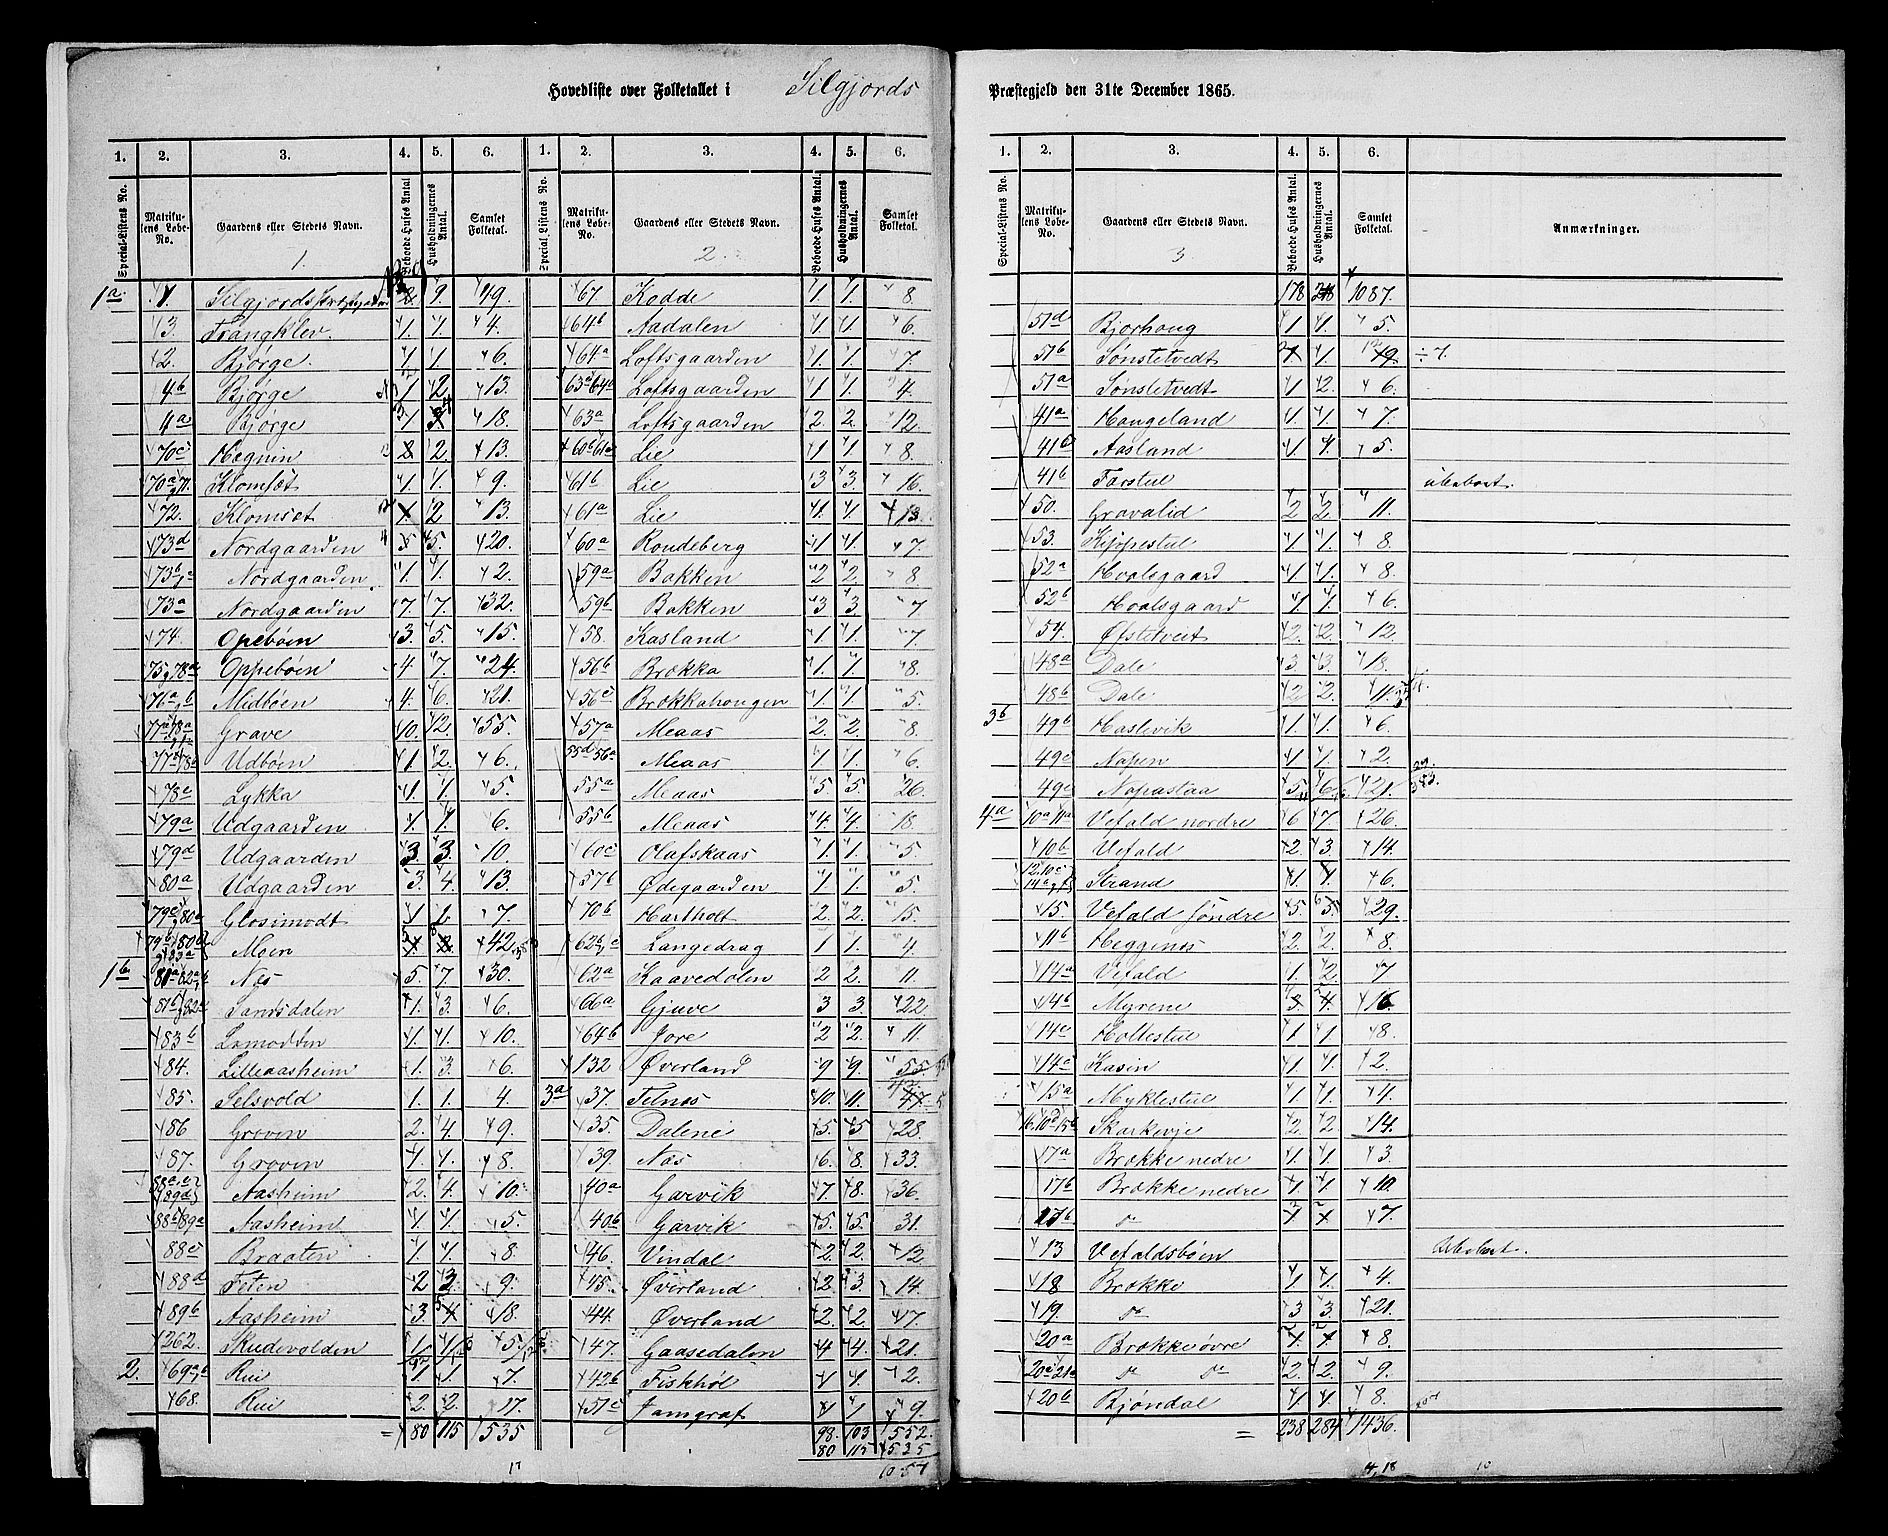 Hovedliste over Folketallet i Silgjords Præstegjeld den 31te December 1865.
1. 2. 3. 4. 5. 6. 1. 2. 3. 4. 5. 6.
Special-Listens No. Matrikulens Løbe-No. Gaardens eller Stedets Navn. Beboede Huses Antal. Husholdningernes Antal. Samlet Folketal. Special-Listens No. Matrikulens Løbe-No. Gaardens eller Stedets Navn. Beboede Huses Antal. Husholdningernes Antal. Samlet Folketal.
1. 2.
1a 1. Silgjords 9. 49. 67. Kodde 1. 1. 8.
3. Trangklev 1. 1. 4. 64b Aadalen 1. 1. 6.
2. Bjørge 1. 1. 6. 64a Loftsgaarden 1. 1. 7.
4b Bjørge 1 2. 13. 63a 64a Loftsgaarden 1 1. 4.
4a Bjørge 18. 63a Loftsgaarden 2. 2. 12.
70c Hegnin 2. 13. 60b 61a Lie 1 1. 8.
70a 71. Klomset 1. 1. 9. 61b Lie 3 3. 16.
72. Klomset 2 13. 61a Lie 1. 1. 13.
73d Nordgaarden 5. 20. 60a Rondeberg 1 1. 7.
73b Nordgaarden 1. 1. 2. 59a Bakken 2 2. 8.
73a Nordgaarden 7. 7. 32. 59b Bakken 3 3. 7
74. Opebøen 3. 5. 15. 58. Kasland 1. 1. 7.
75 78a Oppebøen 4. 7. 24. 56b Brokka 1. 1. 8.
76a b Midbøen 4. 6. 21. 56c Brokkahongen 1. 1. 5.
77a 78a Grave 10. 12. 55. 57a Meaas 2. 2. 8.
77a 78b Udbøen 1 2. 6. 55d 56a Meaas 1 1. 6.
78c Lykka 1. 1. 5. 55a Meaas 5. 5. 26.
79a Udgaarden 1. 1. 6. 55b Meaas 4. 4. 18.
79d Udgaarden 3. 3. 10. 60c Olafskaas 1. 1. 5.
80a Udgaarden 3. 4. 13. 57b Ødegaarden 1. 1. 5.
79c 80a Glosimodt 1 1. 7. 70b Hartholt 2. 2. 15.
79b 80b Moen 42. 62 c Langedrag 1 1. 4.
1b 81a 82a b Nes 5. 7. 30. 62a Kaavedalen 2 2. 11.
81b 82a Sandsdalen 1. 3. 6. 66a Gjuve 3 3. 22.
83b Lomodten 1. 1. 10. 64b Jore 2 2. 11.
84. Lilleaasheim 1. 3. 6. 132 Øverland 9 9. 55.
85. Selsvold 1. 1. 4. 3a 37. Telnes 10. 11. 47.
86 Groven 2. 4. 9. 35. Dalene 5. 5 28.
87. Groven 1. 1. 8. 39. Nes 6. 8. 33.
88a c 89a Aasheim 2. 4. 10. 40a Garvik 7. 8. 36.
88b 89a Aasheim 1. 1. 5. 40b Garvik 5. 5 31.
88c Braaten 1. 1. 8. 46. Vindal 2. 2. 12
88d Teten 2 3. 9. 45. Øverland 2. 3. 14.
89b Aasheim 3. 4 18. 44. Øverland 2. 2. 17.
262. Skudevolden 1 1 5. 47. Gaasedalen 4 4. 21.
2. 69a b Rui 1. 1. 7. 42b Fiskhøl 1 1. 2.
68. Rui 2. 2. 17. 51c Jamgraf 1 1. 9.
= 80 115 535 98. 103 552.
80 115 535
17 1087
1. 2. 3. 4. 5. 6.
Special-Listens No. Matrikulens Løbe-No. Gaardens eller Stedets Navn. Beboede Huses Antal. Husholdningernes Antal. Samlet Folketal. Anmærkninger.
3.
178 218 1087.
51d Bjorhong 1 1. 5.
51b Sønstetvedt 1. 19. ÷ 7.
51a Sønstetvedt 1 2. 6.
41a Hangeland 1. 1. 7.
41b Aasland 1 1. 5.
41b Farstul ubeboet.
50. Gravalid 2 2. 11.
53. Kjøpestul 1. 1. 8.
52a Hvalsgaard 1. 1. 8.
52b Hvalsgaard 1 1. 6.
54. Øfstetveit 2. 2. 12.
48a Dale 3. 3. 18.
48b Dale 2 2. 11.
3b 49b Haslevik 1. 1. 6.
49c Napen 1 1. 2.
49c Napastaa 5 6. 21.
4a 10a 11a Vefald nordre 6 7. 26.
10b Vefald 2. 3. 14.
12. 10c 14a Strand 1. 1. 6.
15. Vefald søndre 5. 5. 29.
11b Heggenes 2. 2. 8.
14a Vefald 1. 2. 7
14b Myrene 3. 4. 16.
14c Holtestul 1 1. 8.
14c Kasin 1. 1. 2.
15a Myklestul 1. 1. 4.
16. 10d 15b Skarkevje 2. 2. 14.
17a Brokke nedre 1. 1. 3
17b Brokke nedre 1 1. 10.
17b do 1 1 7.
13 Vefaldsbøen Ubeboet.
18 Brokke 1 1. 4.
19. do 3 3. 21.
20a Brokke øvre 1. 1. 8.
20a 21a do do 2. 2. 9.
20b Bjøndal 1. 1. 8.
= 238 284 1436.
18 10